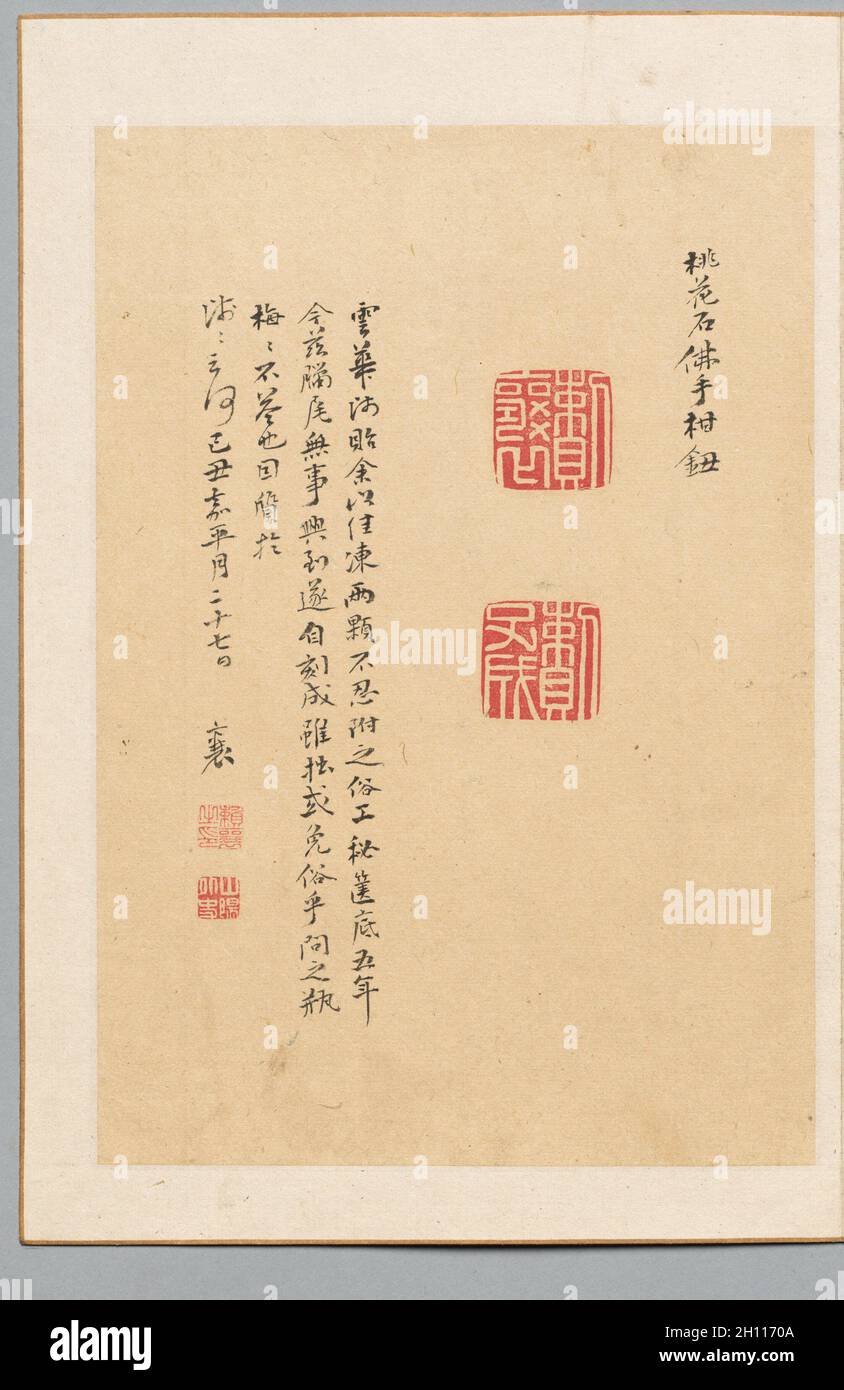 桃花石佛手柑鈕
雲華師貽余以佳凍兩顆不忍附之俗工秘篋底五年
今茲臘尾無事興到遂自刻成雖拙或免俗乎問之瓶
梅〻不答也因質於
師〻云何己丑嘉平月二十七日 襄
賴襄之印
山陽外史
alamy
Image ID: 2H1170A
www.alamy.com